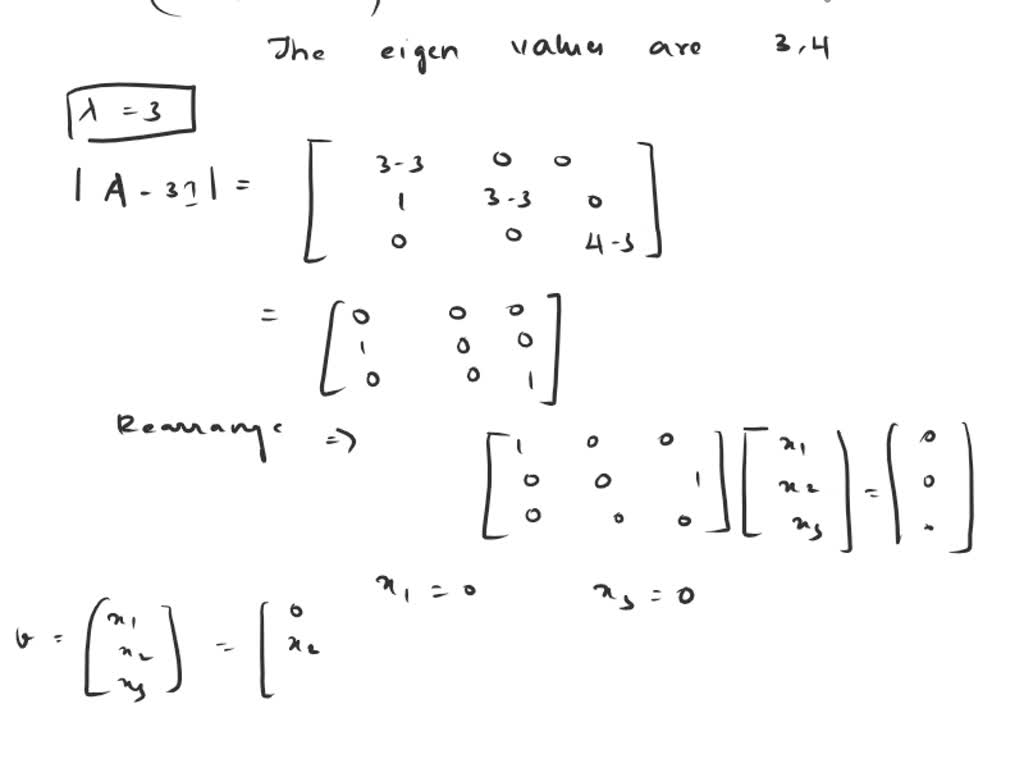 The eigen values are 3,4
λ = 3
|A - 3I| = [ 3-3 0 0
1 3-3 0
0 0 4-3 ]
= [ 0 0 0
1 0 0
0 0 1 ]
Rearrange => [ 1 0 0
0 0 1
0 0 0 ] [ x1
x2
x3 ] = [ 0
0
. ]
x1 = 0 x3 = 0
v = [ x1
x2
x3 ] = [ 0
x2